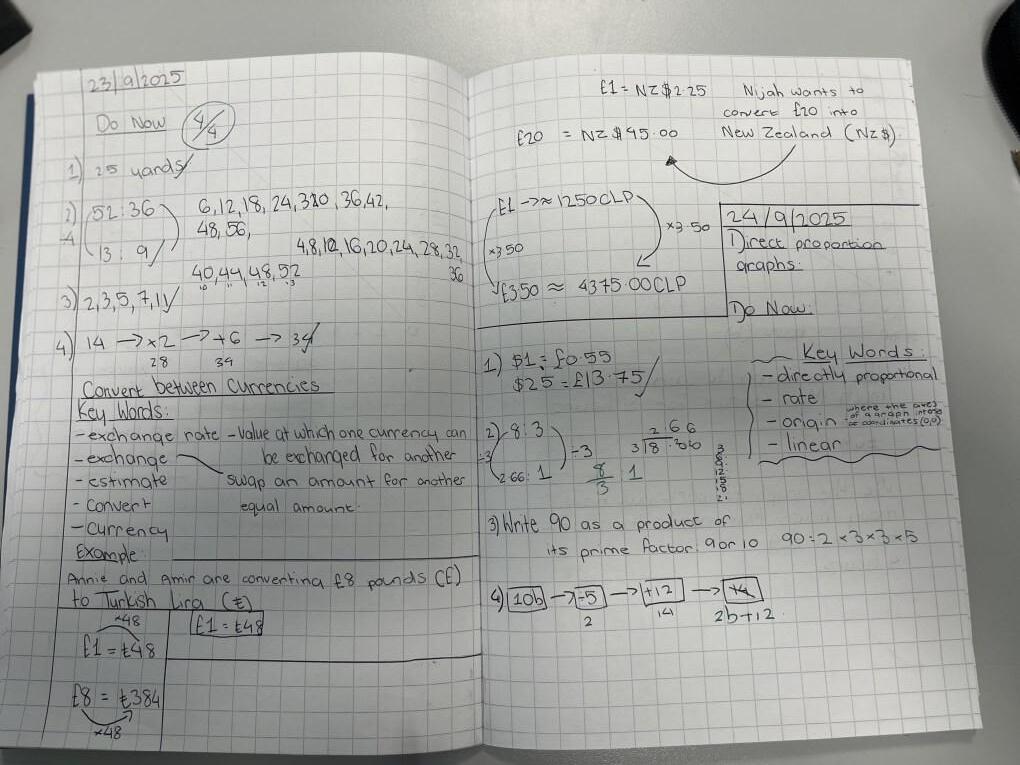 23/9/2025
Do Now 4/4
1) 25 yards
2) 52:36
÷4
13 : 9
6,12,18,24,30,36,42,
48,56,
4,8,12,16,20,24,28,32,
36
40,44,48,52
10 11 12 13
3) 2,3,5,7,11
4) 14 → ×2 → +6 → 34
28 34
Convert between Currencies
Key Words:
- exchange rate - Value at which one currency can
be exchanged for another
- exchange
swap an amount for another
equal amount.
- estimate
- Convert
- Currency
Example:
Annie and Amir are converting £8 pounds (£)
to Turkish Lira (₺)
×48
£1 = ₺48
£1 = ₺48
£8 = ₺384
×48
£1 = NZ$2.25
Nijah wants to
convert £20 into
New Zealand (NZ$).
£20 = NZ$45.00
£1 → ≈ 1250CLP
×3.50
×3.50
£3.50 ≈ 4375.00CLP
24/9/2025
Direct proportion
graphs.
Do Now:
1) $1 = £0.55
$25 = £13.75
2) 8:3
÷3
÷3
2.66: 1
8/3 1
2.66
3 8.00
3
6
9
12
15
18
21
Key Words:
- directly proportional
- rate
- origin where the axes
of a graph
coordinates (0,0)
- linear
3) Write 90 as a product of
its prime factor. 9 or 10 90 = 2×3×3×5
4) 10b → ÷5 → +12 →
2 14 2b+12